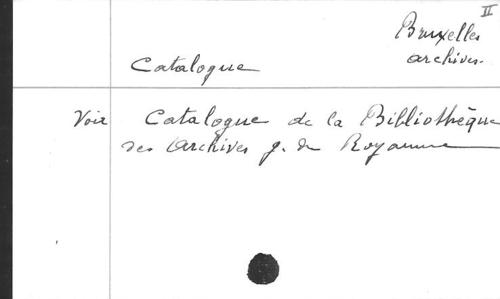 II
Bruxelles
archives.
Catalogue
Voir Catalogue de la Bibliothèque
des Archives g. du Royaume